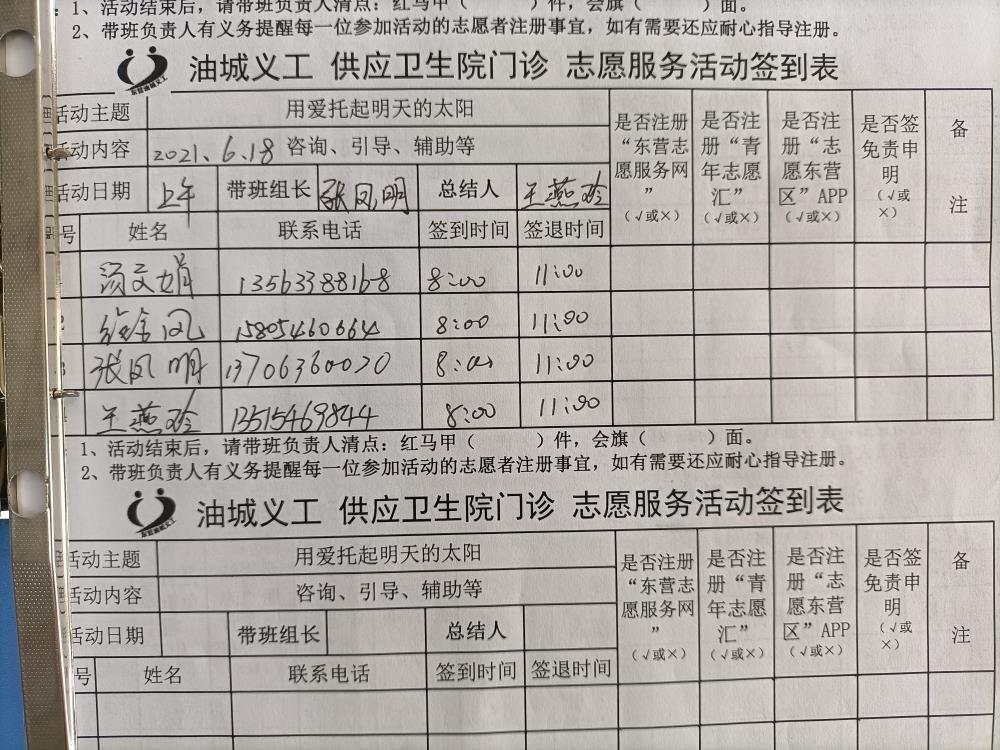 1、活动结束后，请带班负责人清点：红马甲（　　）件，会旗（　　）面。
2、带班负责人有义务提醒每一位参加活动的志愿者注册事宜，如有需要还应耐心指导注册。
油城义工 供应卫生院门诊 志愿服务活动签到表
活动主题 用爱托起明天的太阳 是否注册“东营志愿服务网”（√或×） 是否注册“青年志愿汇”（√或×） 是否注册“志愿东营区”APP（√或×） 是否签免责申明（√或×） 备注
活动内容 2021、6.18 咨询、引导、辅助等
活动日期 上午 带班组长 张凤明 总结人 王燕玲
号 姓名 联系电话 签到时间 签退时间
文娟 13563388168 8:00 11:00
2 徐金凤 15805460664 8:00 11:00
3 张凤明 13706360020 8:00 11:00
王燕玲 13515469844 8:00 11:00
1、活动结束后，请带班负责人清点：红马甲（　　）件，会旗（　　）面。
2、带班负责人有义务提醒每一位参加活动的志愿者注册事宜，如有需要还应耐心指导注册。
油城义工 供应卫生院门诊 志愿服务活动签到表
活动主题 用爱托起明天的太阳 是否注册“东营志愿服务网”（√或×） 是否注册“青年志愿汇”（√或×） 是否注册“志愿东营区”APP（√或×） 是否签免责申明（√或×） 备注
活动内容 咨询、引导、辅助等
活动日期 带班组长 总结人
号 姓名 联系电话 签到时间 签退时间